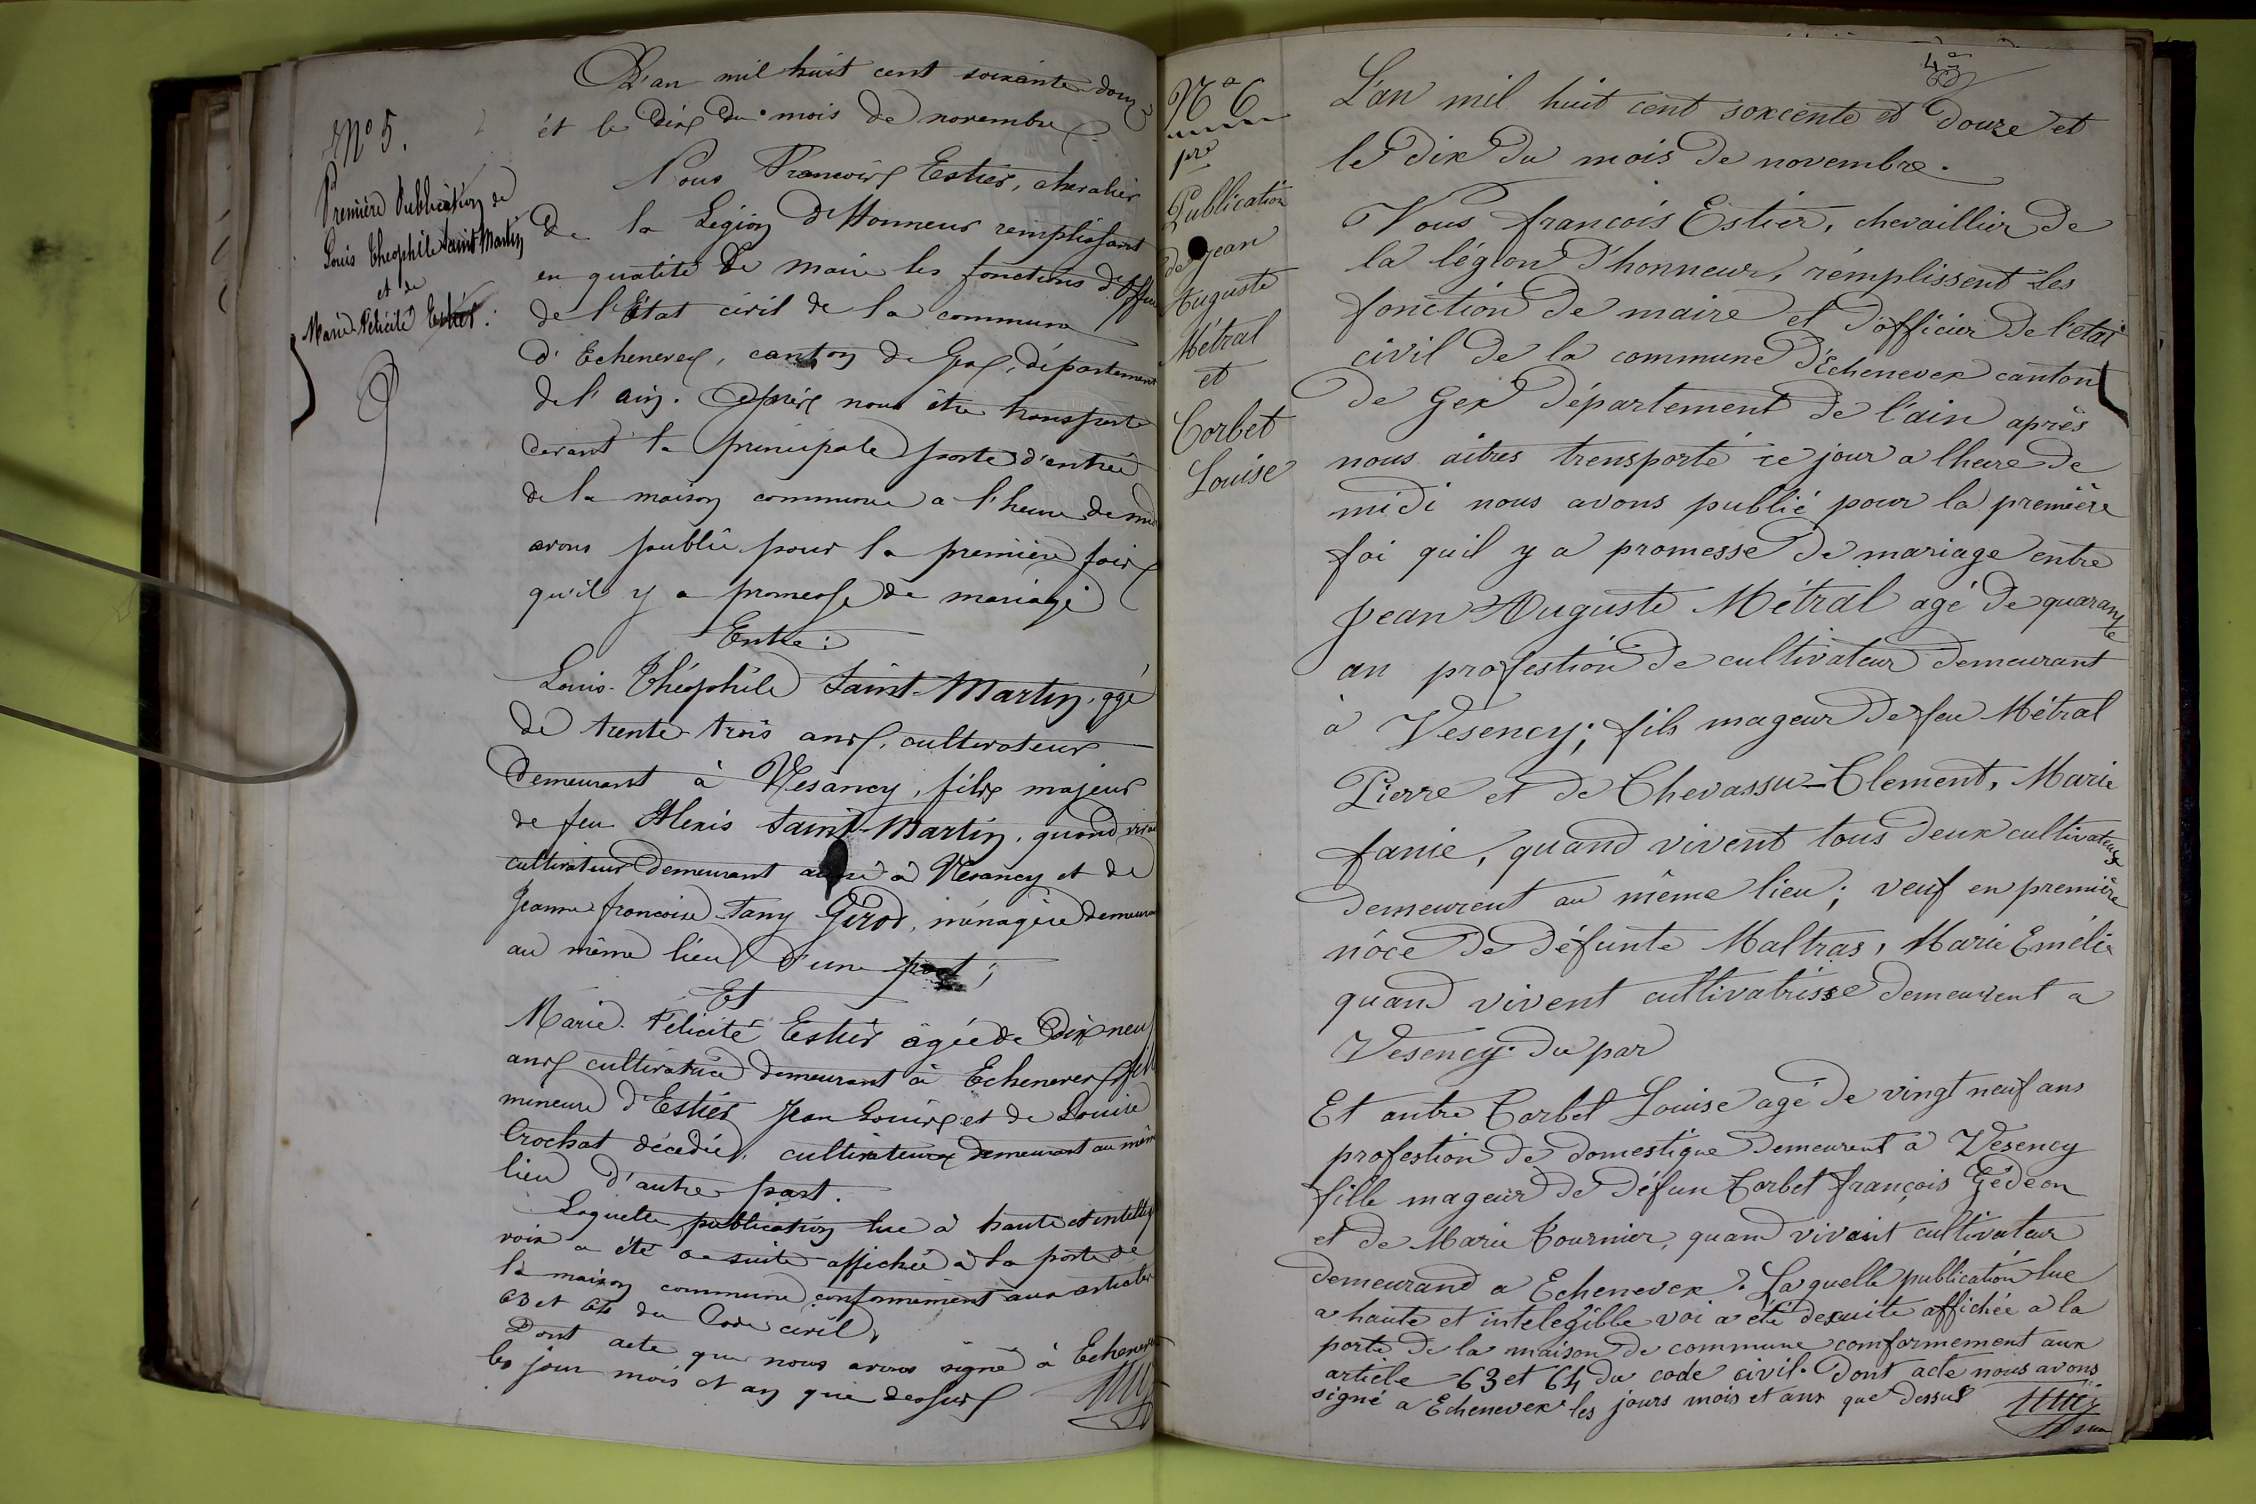 N° 5.
Première Publication de
Louis Théophile Saint Martin
et de
Marie Félicité Estier.
L'an mil huit cent soixante douze
et le dix du mois de novembre
Nous François Estier, chevalier
de la Légion d'Honneur remplissant
en qualité de maire les fonctions d'Offi
de l'Etat civil de la commune
d'Echenevex, canton de Gex, département
de l'ain. Après nous être transporté
devant la principale porte d'entrée
de la maison commune a l'heure de mi
avons publié pour la première fois
qu'il y a promesse de mariage
Entre:
Louis-Théophile Saint-Martin, agé
de trente-trois ans, cultivateur
demeurant à Vesancy, fils majeur
de feu Alexis Saint-Martin, quand viva
cultivateur demeurant aussi à Vesancy et de
Jeanne françoise Tany Girod, ménagère demeura
au même lieu d'une part;
Et
Marie-Félicité Estier agée de Dix neuf
ans cultivatrice demeurant à Echenevex fill
mineure d'Estier Jean Louis et de Louise
Crochat décédée, cultivateurs demeurant au mêm
lieu d'autre part.
Laquelle publication lue à haute et intellig
voix a été de suite affichée à la porte de
la maison commune conformément aux articles
63 et 64 du Code civil,
Dont acte que nous avons signé à Echenevex
les jour mois et an que dessus
N° 6
pre
Publication
de jean
Auguste
Métral
et
Corbet
Louise
L'an mil huit cent soxcente et douze et
le dix du mois de novembre.
Nous francois Estier, chevaillier de
la légion d'honneur, remplissent les
fonction de maire et d'officier de l'etat
civil de la commune d'Echenevex canton
de Gex département de l'ain après
nous aitres trensporté ce jour a lheure de
midi nous avons publié pour la première
foi quil y a promesse de mariage entre
Jean Auguste Métral agé de quarante
an profestion de cultivateur demeurant
à Vesency; fils mageur de feu Métral
Pierre et de Chevassu-Clement, Marie
fanie, quand vivent tous deux cultivateurs
demeurent au même lieu; veuf en première
nôce de défunte Maltras, Marie Emélie
quand vivent cultivatrisse demeurent a
Vesency. du par
Et autre Corbet Louise agé de vingt neuf ans
profestion de domestique demeurent à Vesency
fille mageur de défun Corbet françois Gédéon
et de Marie Tournier, quand vivant cultivateur
demeurand a Echenevex. Laquelle publication lue
a haute et intelegible voi a été desuite affichée a la
porte de la maison de commune comformement aux
article 63 et 64 du code civil. Dont acte nous avons
signé a Echenevex les jours mois et ans que dessus